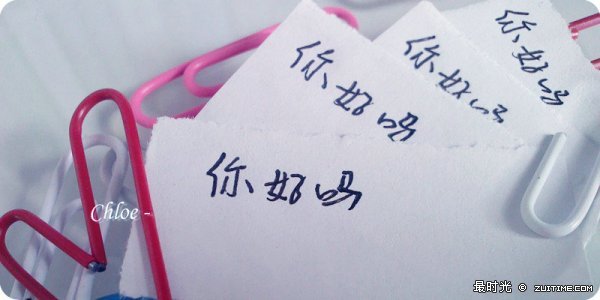 你好吗
你好吗
你好吗
你好吗
Chloe -
最时光 © ZUITIME.COM